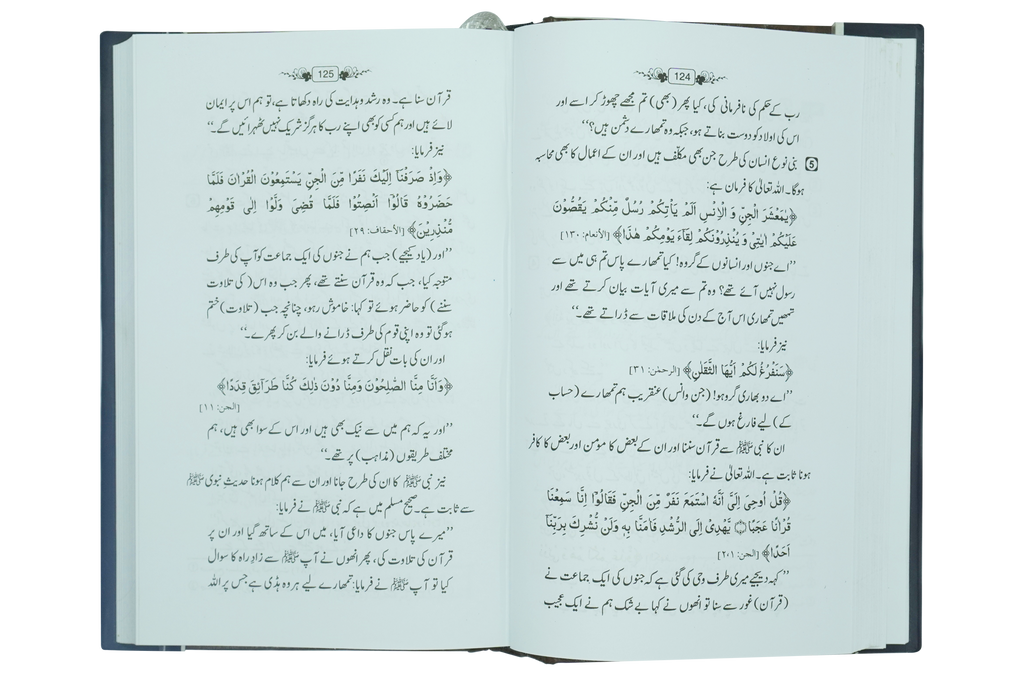 124
رب کے حکم کی نافرمانی کی، کیا پھر (بھی) تم مجھے چھوڑ کر اسے اور
اس کی اولاد کو دوست بناتے ہو، جبکہ وہ تمھارے دشمن ہیں؟“
5 بنی نوع انسان کی طرح جن بھی مکلّف ہیں اور ان کے اعمال کا بھی محاسبہ
ہوگا۔ اللہ تعالیٰ کا فرمان ہے:
﴿يٰمَعْشَرَ الْجِنِّ وَ الْاِنْسِ اَلَمْ يَاْتِكُمْ رُسُلٌ مِّنْكُمْ يَقُصُّوْنَ
عَلَيْكُمْ اٰيٰتِيْ وَ يُنْذِرُوْنَكُمْ لِقَآءَ يَوْمِكُمْ هٰذَا﴾ [الأنعام: ١٣٠]
”اے جنوں اور انسانوں کے گروہ! کیا تمھارے پاس تم ہی میں سے
رسول نہیں آئے تھے؟ وہ تم سے میری آیات بیان کرتے تھے اور
تمھیں تمھاری اس آج کے دن کی ملاقات سے ڈراتے تھے۔“
نیز فرمایا:
﴿سَنَفْرُغُ لَكُمْ اَيُّهَا الثَّقَلٰنِ﴾ [الرحمٰن: ٣١]
”اے دو بھاری گروہو! (جن وانس) عنقریب ہم تمھارے (حساب
کے) لیے فارغ ہوں گے۔“
ان کا نبی ﷺ سے قرآن سننا اور ان کے بعض کا مؤمن اور بعض کا کافر
ہونا ثابت ہے۔ اللہ تعالیٰ نے فرمایا:
﴿قُلْ اُوحِيَ اِلَيَّ اَنَّهُ اسْتَمَعَ نَفَرٌ مِّنَ الْجِنِّ فَقَالُوْٓا اِنَّا سَمِعْنَا
قُرْاٰنًا عَجَبًا ۝ يَّهْدِيْٓ اِلَى الرُّشْدِ فَاٰمَنَّا بِهٖ وَلَنْ نُّشْرِكَ بِرَبِّنَآ
اَحَدًا﴾ [الجن: ٢،١]
”کہہ دیجیے میری طرف وحی کی گئی ہے کہ جنوں کی ایک جماعت نے
(قرآن) غور سے سنا تو انھوں نے کہا بے شک ہم نے ایک عجیب
125
قرآن سنا ہے۔ وہ رشد و ہدایت کی راہ دکھاتا ہے، تو ہم اس پر ایمان
لائے ہیں اور ہم کسی کو بھی اپنے رب کا ہرگز شریک نہیں ٹھہرائیں گے۔“
نیز فرمایا:
﴿وَاِذْ صَرَفْنَآ اِلَيْكَ نَفَرًا مِّنَ الْجِنِّ يَسْتَمِعُوْنَ الْقُرْاٰنَ فَلَمَّا
حَضَرُوْهُ قَالُوْٓا اَنْصِتُوْا فَلَمَّا قُضِيَ وَلَّوْا اِلٰى قَوْمِهِمْ
مُّنْذِرِيْنَ﴾ [الأحقاف: ٢٩]
”اور (یاد کیجیے) جب ہم نے جنوں کی ایک جماعت کو آپ کی طرف
متوجہ کیا، جب کہ وہ قرآن سنتے تھے، پھر جب وہ اس (کی تلاوت
سننے) کو حاضر ہوئے تو کہا: خاموش رہو، چنانچہ جب (تلاوت) ختم
ہو گئی تو وہ اپنی قوم کی طرف ڈرانے والے بن کر پھرے۔“
اور ان کی بات نقل کرتے ہوئے فرمایا:
﴿وَاَنَّا مِنَّا الصّٰلِحُوْنَ وَمِنَّا دُوْنَ ذٰلِكَ كُنَّا طَرَآئِقَ قِدَدًا﴾
[الجن: ١١]
”اور یہ کہ ہم میں سے نیک بھی ہیں اور اس کے سوا بھی ہیں، ہم
مختلف طریقوں (مذاہب) پر تھے۔“
نیز نبی ﷺ کا ان کی طرح جانا اور ان سے ہم کلام ہونا حدیثِ نبوی ﷺ
سے ثابت ہے۔ صحیح مسلم میں ہے کہ نبی ﷺ نے فرمایا:
”میرے پاس جنوں کا داعی آیا، میں اس کے ساتھ گیا اور ان پر
قرآن کی تلاوت کی، پھر انھوں نے آپ ﷺ سے زادِ راہ کا سوال
کیا تو آپ ﷺ نے فرمایا: تمھارے لیے ہر وہ ہڈی ہے جس پر اللہ